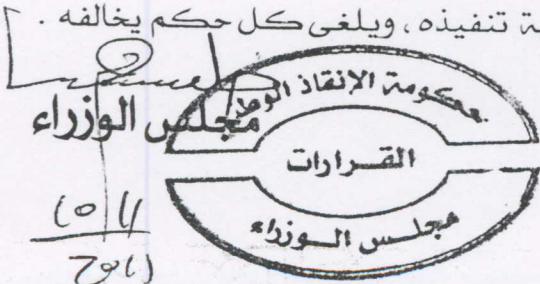 ة تنفيذه، ويلغى كل حكم يخالفه .
مجلس الوزراء
حكومة الإنقاذ الوط
القرارات
مجلس الوزراء